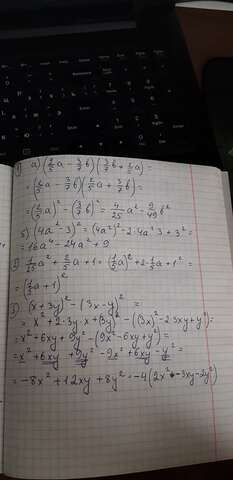 1) а) (2/5 a - 3/7 b)(3/7 b + 2/5 a) =
= (2/5 a - 3/7 b)(2/5 a + 3/7 b) =
= (2/5 a)² - (3/7 b)² = 4/25 a² - 9/49 b²
б) (4a² - 3)² = (4a²)² - 2·4a²·3 + 3² =
= 16a⁴ - 24a² + 9
a² + 2/5 a + 1 = (1/5 a)² + 2·1/5 a + 1² =
= (1/5 a + 1)²
(x + 3y)² - (3x - y)² =
= x² + 2·3y·x + (3y)² - ((3x)² - 2·3xy + y²) =
= x² + 6xy + 9y² - (9x² - 6xy + y²) =
= x² + 6xy + 9y² - 9x² + 6xy - y² =
= -8x² + 12xy + 8y² = -4(2x² - 3xy - 2y²)